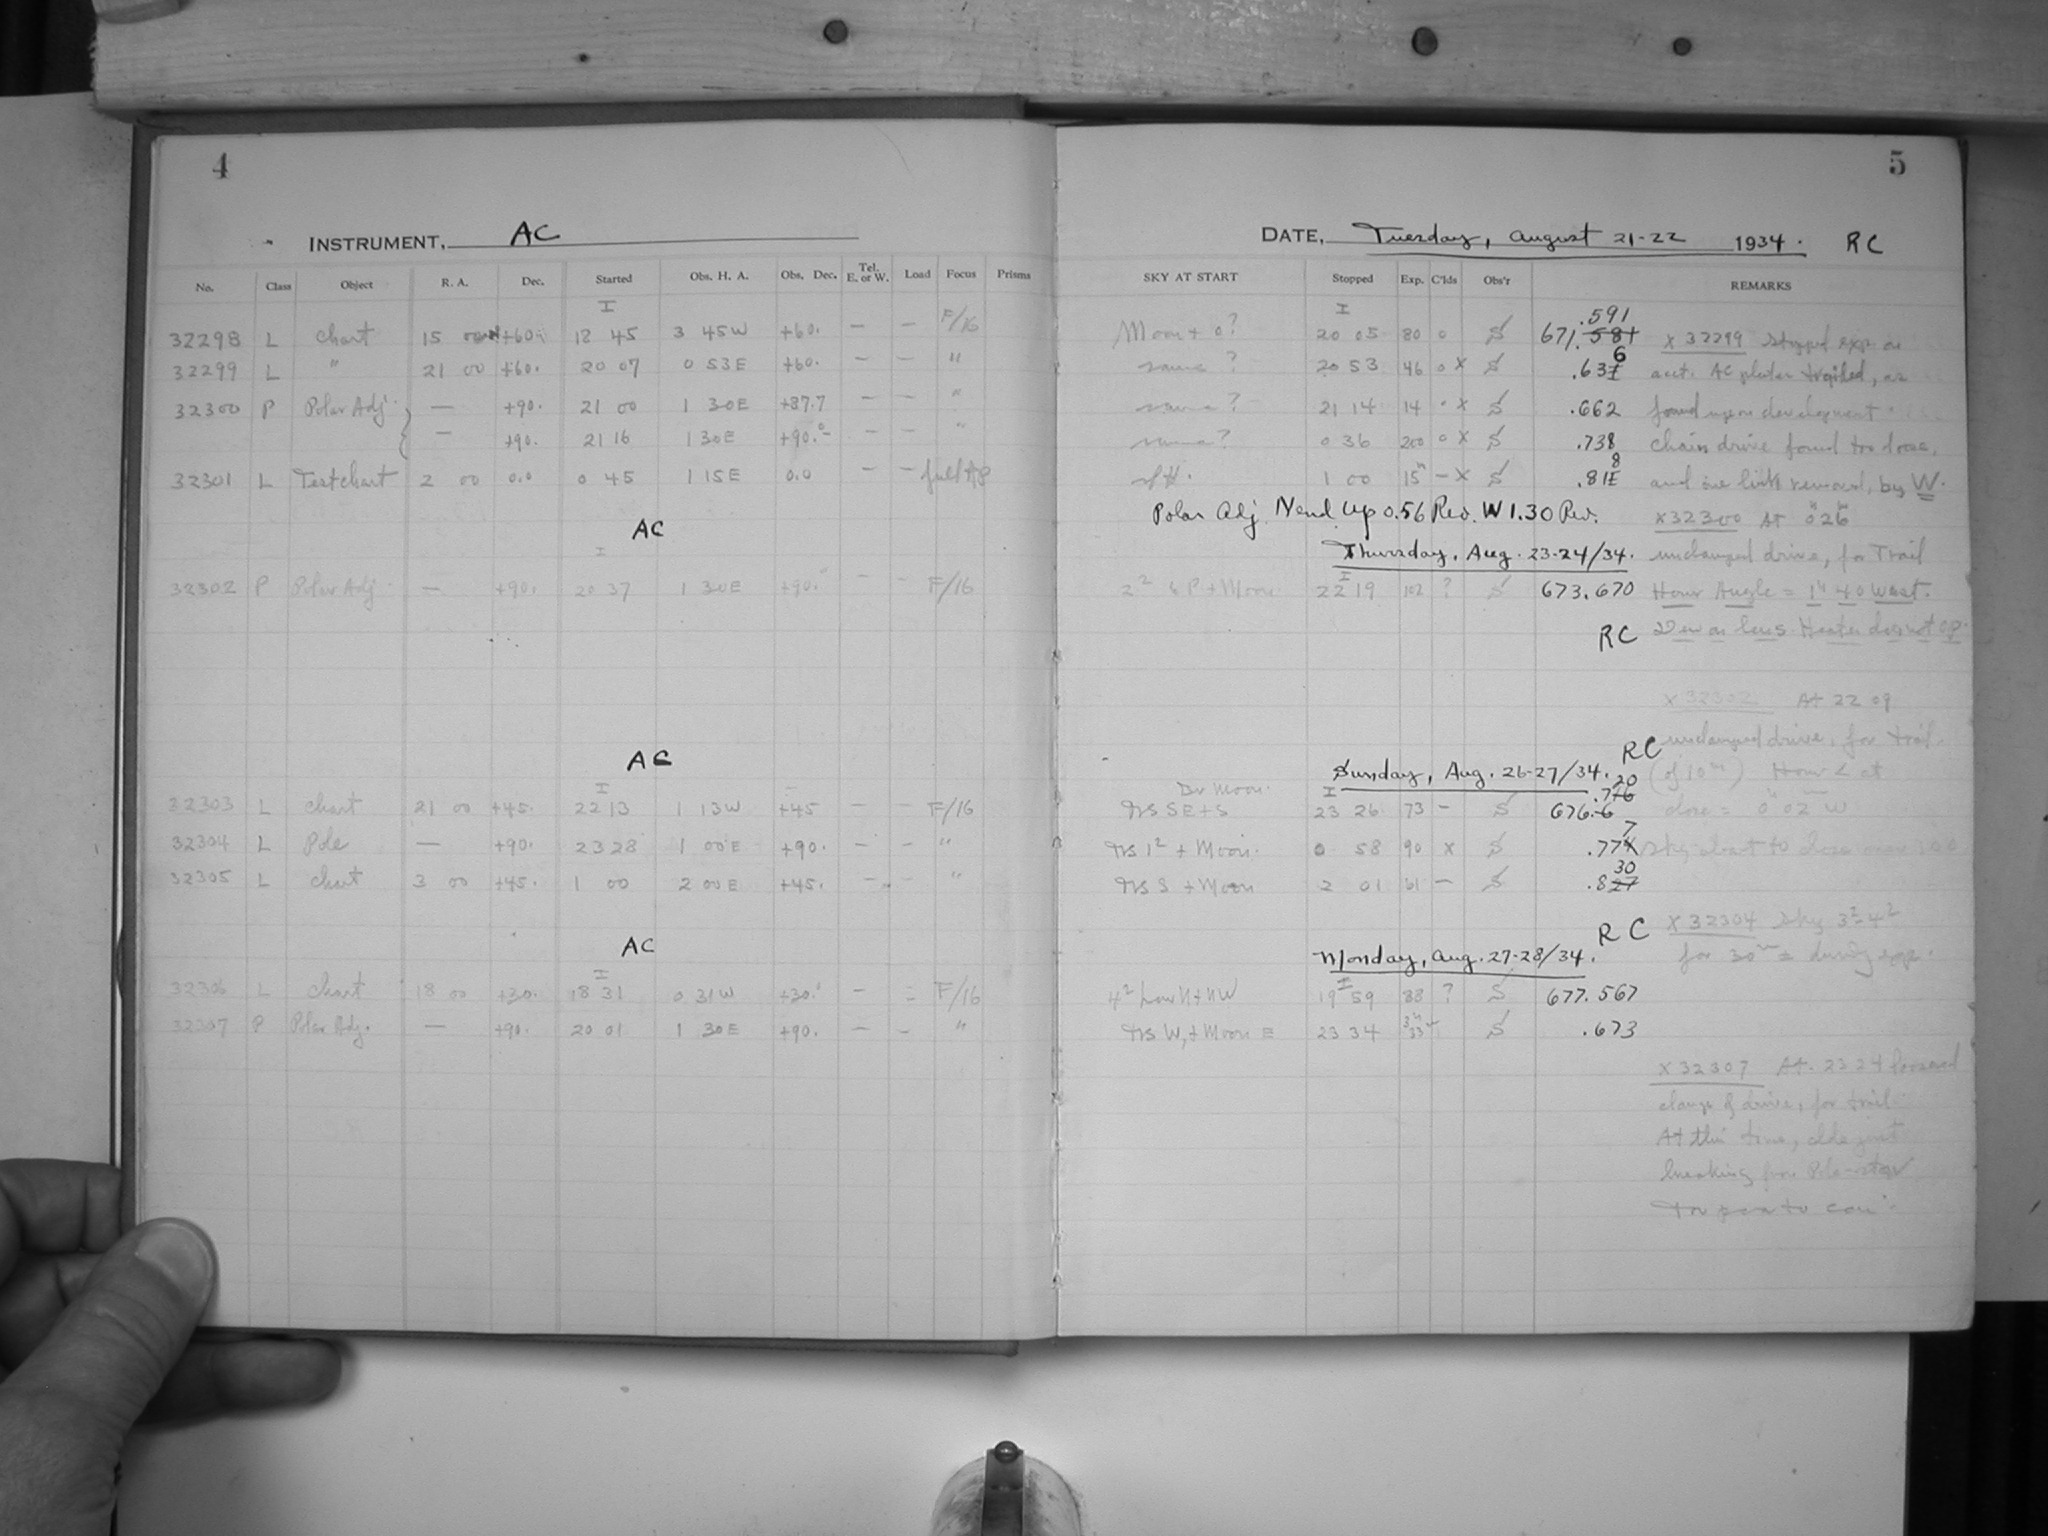 4
INSTRUMENT, AC
No. Class Object R. A. Dec. Started Obs. H. A. Obs. Dec. Tel. E. or W. Load Focus Prisms
I
32298 L Chart 15 00 +60. 18 45 3 45W +60. — — F/16
32299 L " 21 00 +60. 20 07 0 53E +60. — — "
32300 P Polar Adj. — +90. 21 00 1 30E +87.7 — — "
— +90. 21 16 1 30E +90.° — — "
32301 L Testchart 2 00 0.0 0 45 1 15E 0.0 — — full Ap
AC
I
32302 P Polar Adj. — +90. 20 37 1 30E +90. — — F/16
AC
I
32303 L Chart 21 00 +45. 22 13 1 13W +45 — — F/16
32304 L Pole — +90. 23 28 1 00E +90. — — "
32305 L Chart 3 00 +45. 1 00 2 00E +45. — — "
AC
I
32306 L Chart 18 00 +30. 18 31 0 31W +30. — — F/16
32307 P Polar Adj. — +90. 20 01 1 30E +90. — — "
5
DATE, Tuesday, August 21-22 1934. RC
SKY AT START Stopped Exp. C'lds Obs'r REMARKS
I .591
Moon + 0? 20 05 80 0 S 671.584 X 32299 Stopped exp. on
same? 20 53 46 0 X S .636 acct. AC plates trailed, as
same? 21 14 14 X S .662 found upon development.
same? 0 36 200 0 X S .738 Chain drive found too loose,
1 00 15 — X S .818 and one link removed, by W.
Polar Adj. N end Up 0.56 Rev. W 1.30 Rev. X32300 At 0 26
Thursday, Aug. 23-24/34. unclamped drive, for Trail
I
+ Moon 22 19 102 ? S 673.670 Hour Angle = 1 40 West.
RC Dew on lens. Heater does not op.
X 32302 At 22 09
RC unclamped drive, for trail.
Sunday, Aug. 26-27/34. (of 10m) Hour < at
Moon. I .776 20
SE + S 23 26 73 — S 676. close = 0 02 W
1² + Moon. 0 58 90 X S .777 Sky about to
S + Moon 2 01 61 — S .827 30
RC X 32304 Sky 3² 4²
Monday, Aug. 27-28/34. for 30m ± during exp.
I
4² Low N + NW 19 59 88 ? S 677.567
W, + Moon E 23 34 S .673
X 32307 At 23 24 loosened
clamp of drive, for trail.
At this time, clds just
breaking from Pole-star